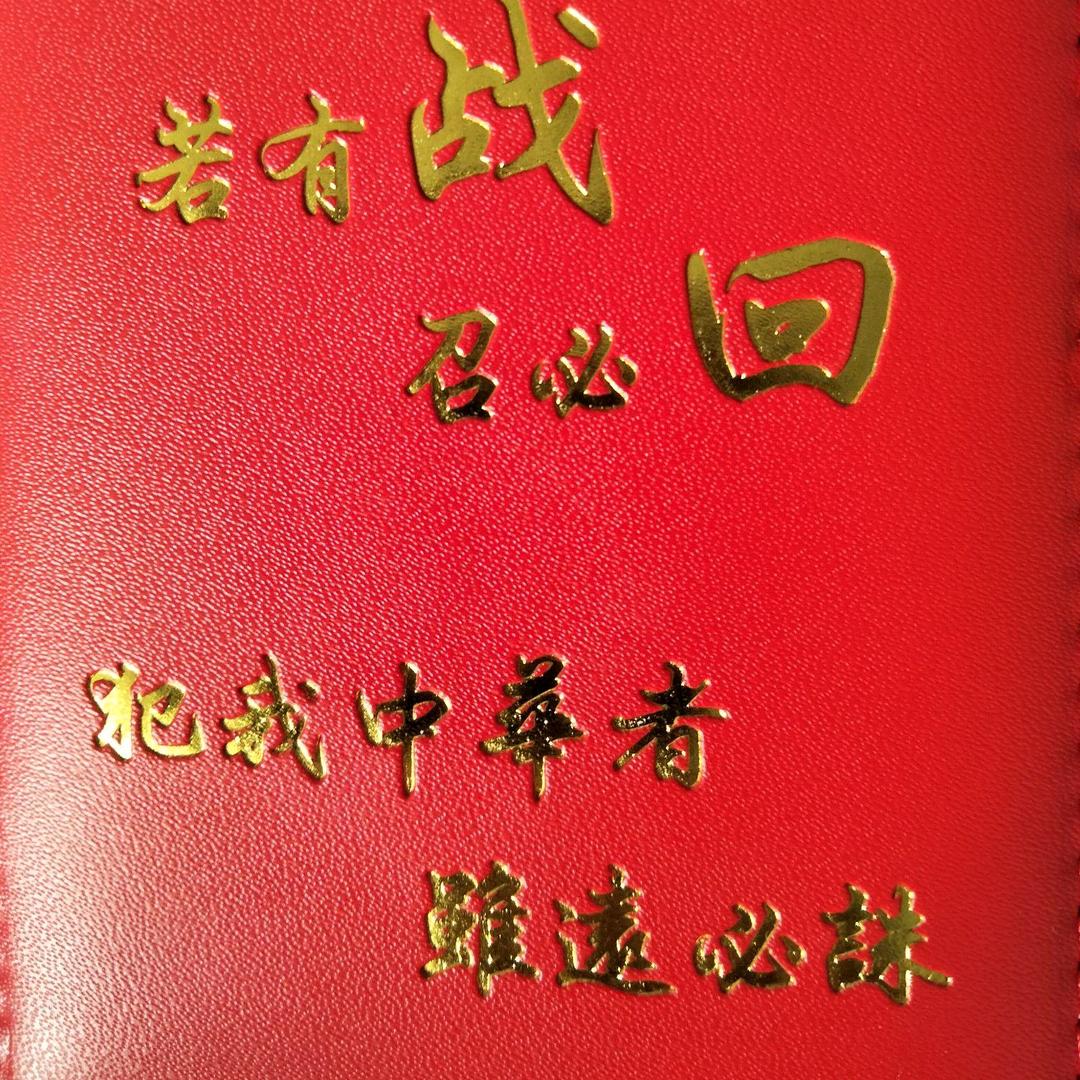 若有战
召必回
犯我中華者
雖遠必誅